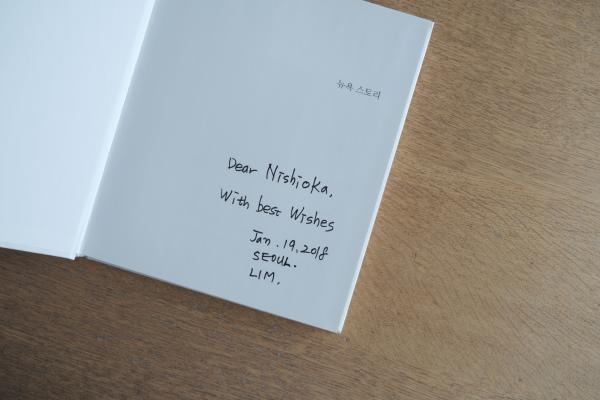 뉴욕 스토리
Dear Nishioka,
With best Wishes
Jan. 19. 2018
SEOUL.
LIM.